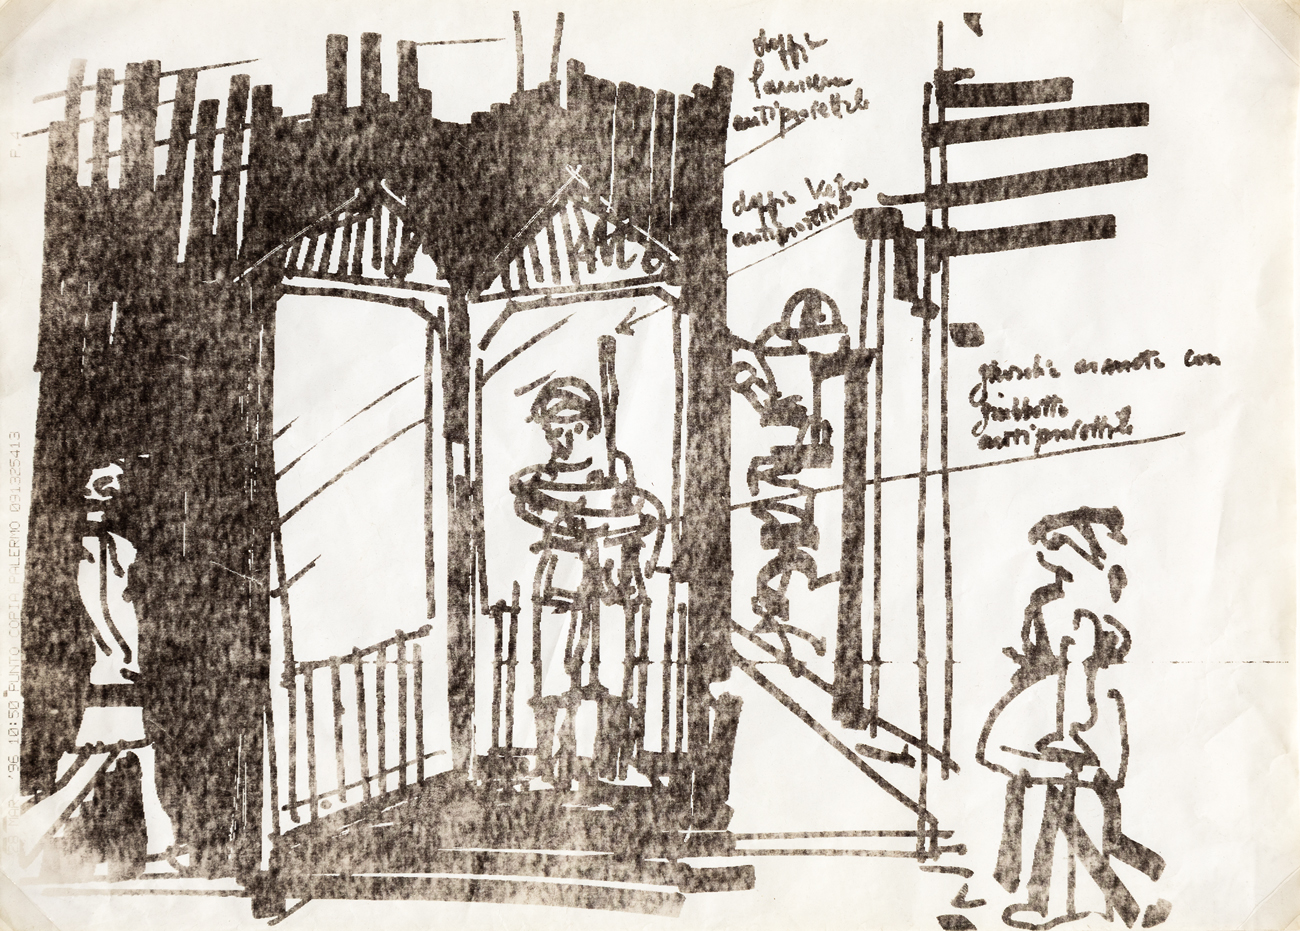 doppia
lamiera
antiproiettile
doppio vetro
antiproiettile
con
giubbotto
antiproiettile
P.4
'96 10:50 PUNTO COPIA PALERMO 091325413